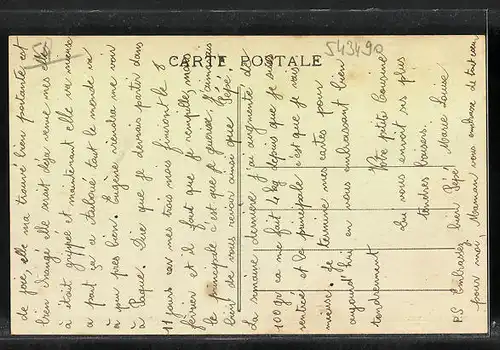 CARTE POSTALE
543490
de joie, elle m'a trouvé bien portante et
bien changé elle serait déjà venue mes elle
à était grippé et maintenant elle va mieux
a part ça a Aubrie tout le monde va
à peu près bien. Eugène viendra me voir
à Pâque. Dire que je devrais partir dans
11 jours car mes trois mois finiront le 8
février et il faut que je rempile, mais
le principale c'est que je guérisse. J'aimerais
bient de vous revoir ainsi que Pépé.
La semaine dernière j'ai augmenté de
100 gr ca me fait 4 kg depuis que je suis
rentré et la principale c'est que je vais
mieuse. Je termine mes cartes pour
aujourd'hui en vous embrassant bien
tendrement
Votre petite
qui vous envoit ses plus
tendres baisers.
Marie Louise
P.S Embrassez bien Pépé
pour moi. Maman vous embrasse de tout cœur